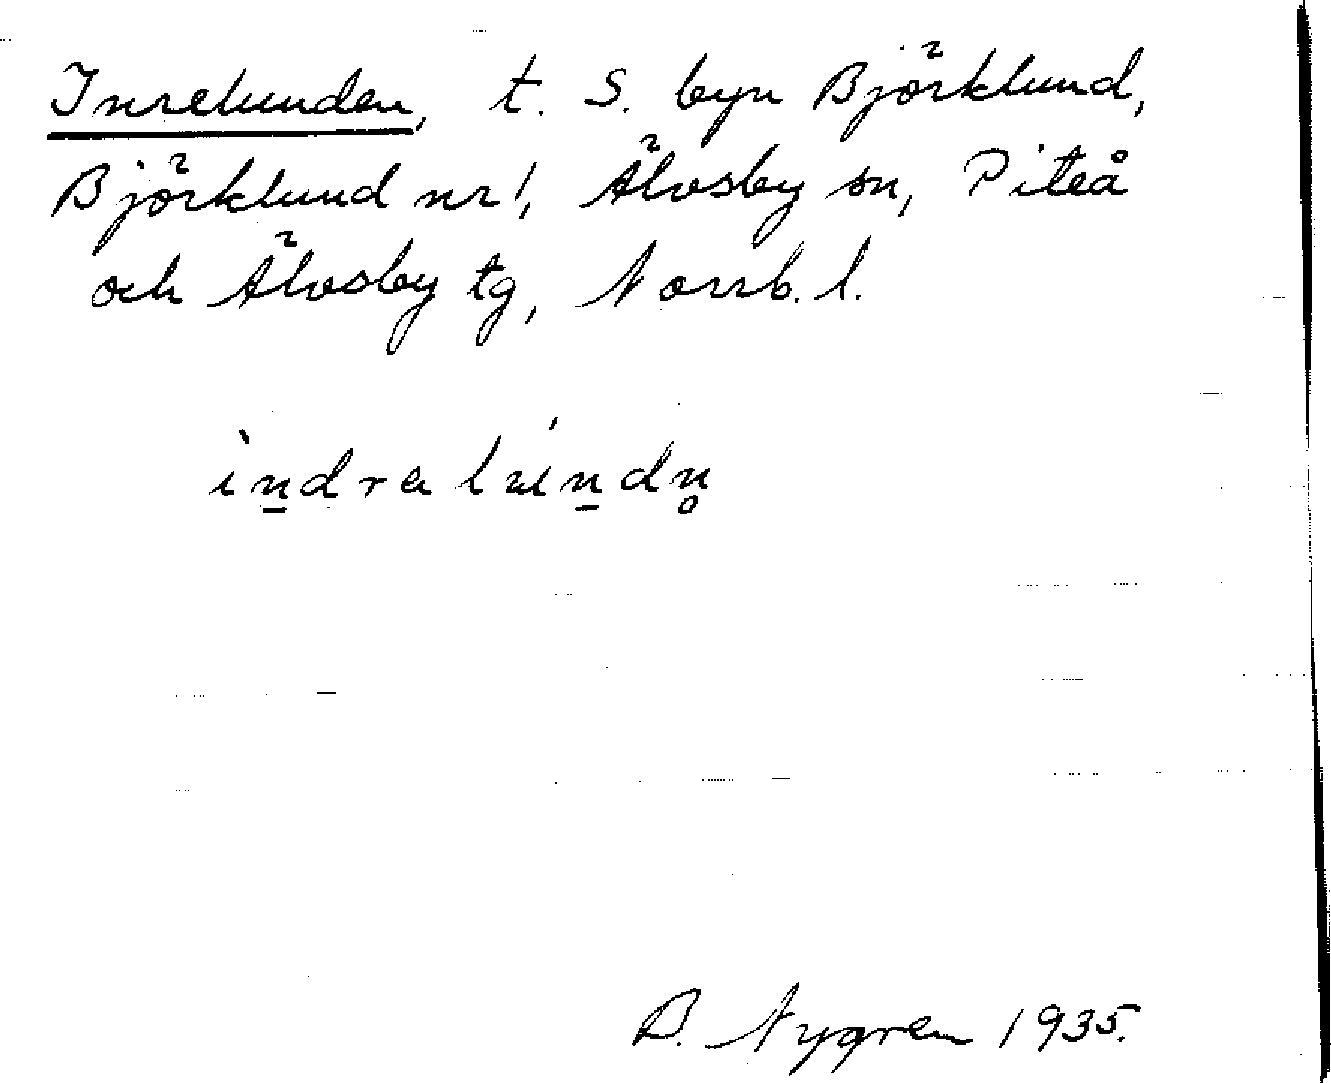 Inrelunden, t. S. byn Björklund,
Björklund nr 1, Älvsby sn, Piteå
och Älvsby tg, Norrb. l.
ìn̲dra lú̲n̲dn̥
B. Nygren 1935.